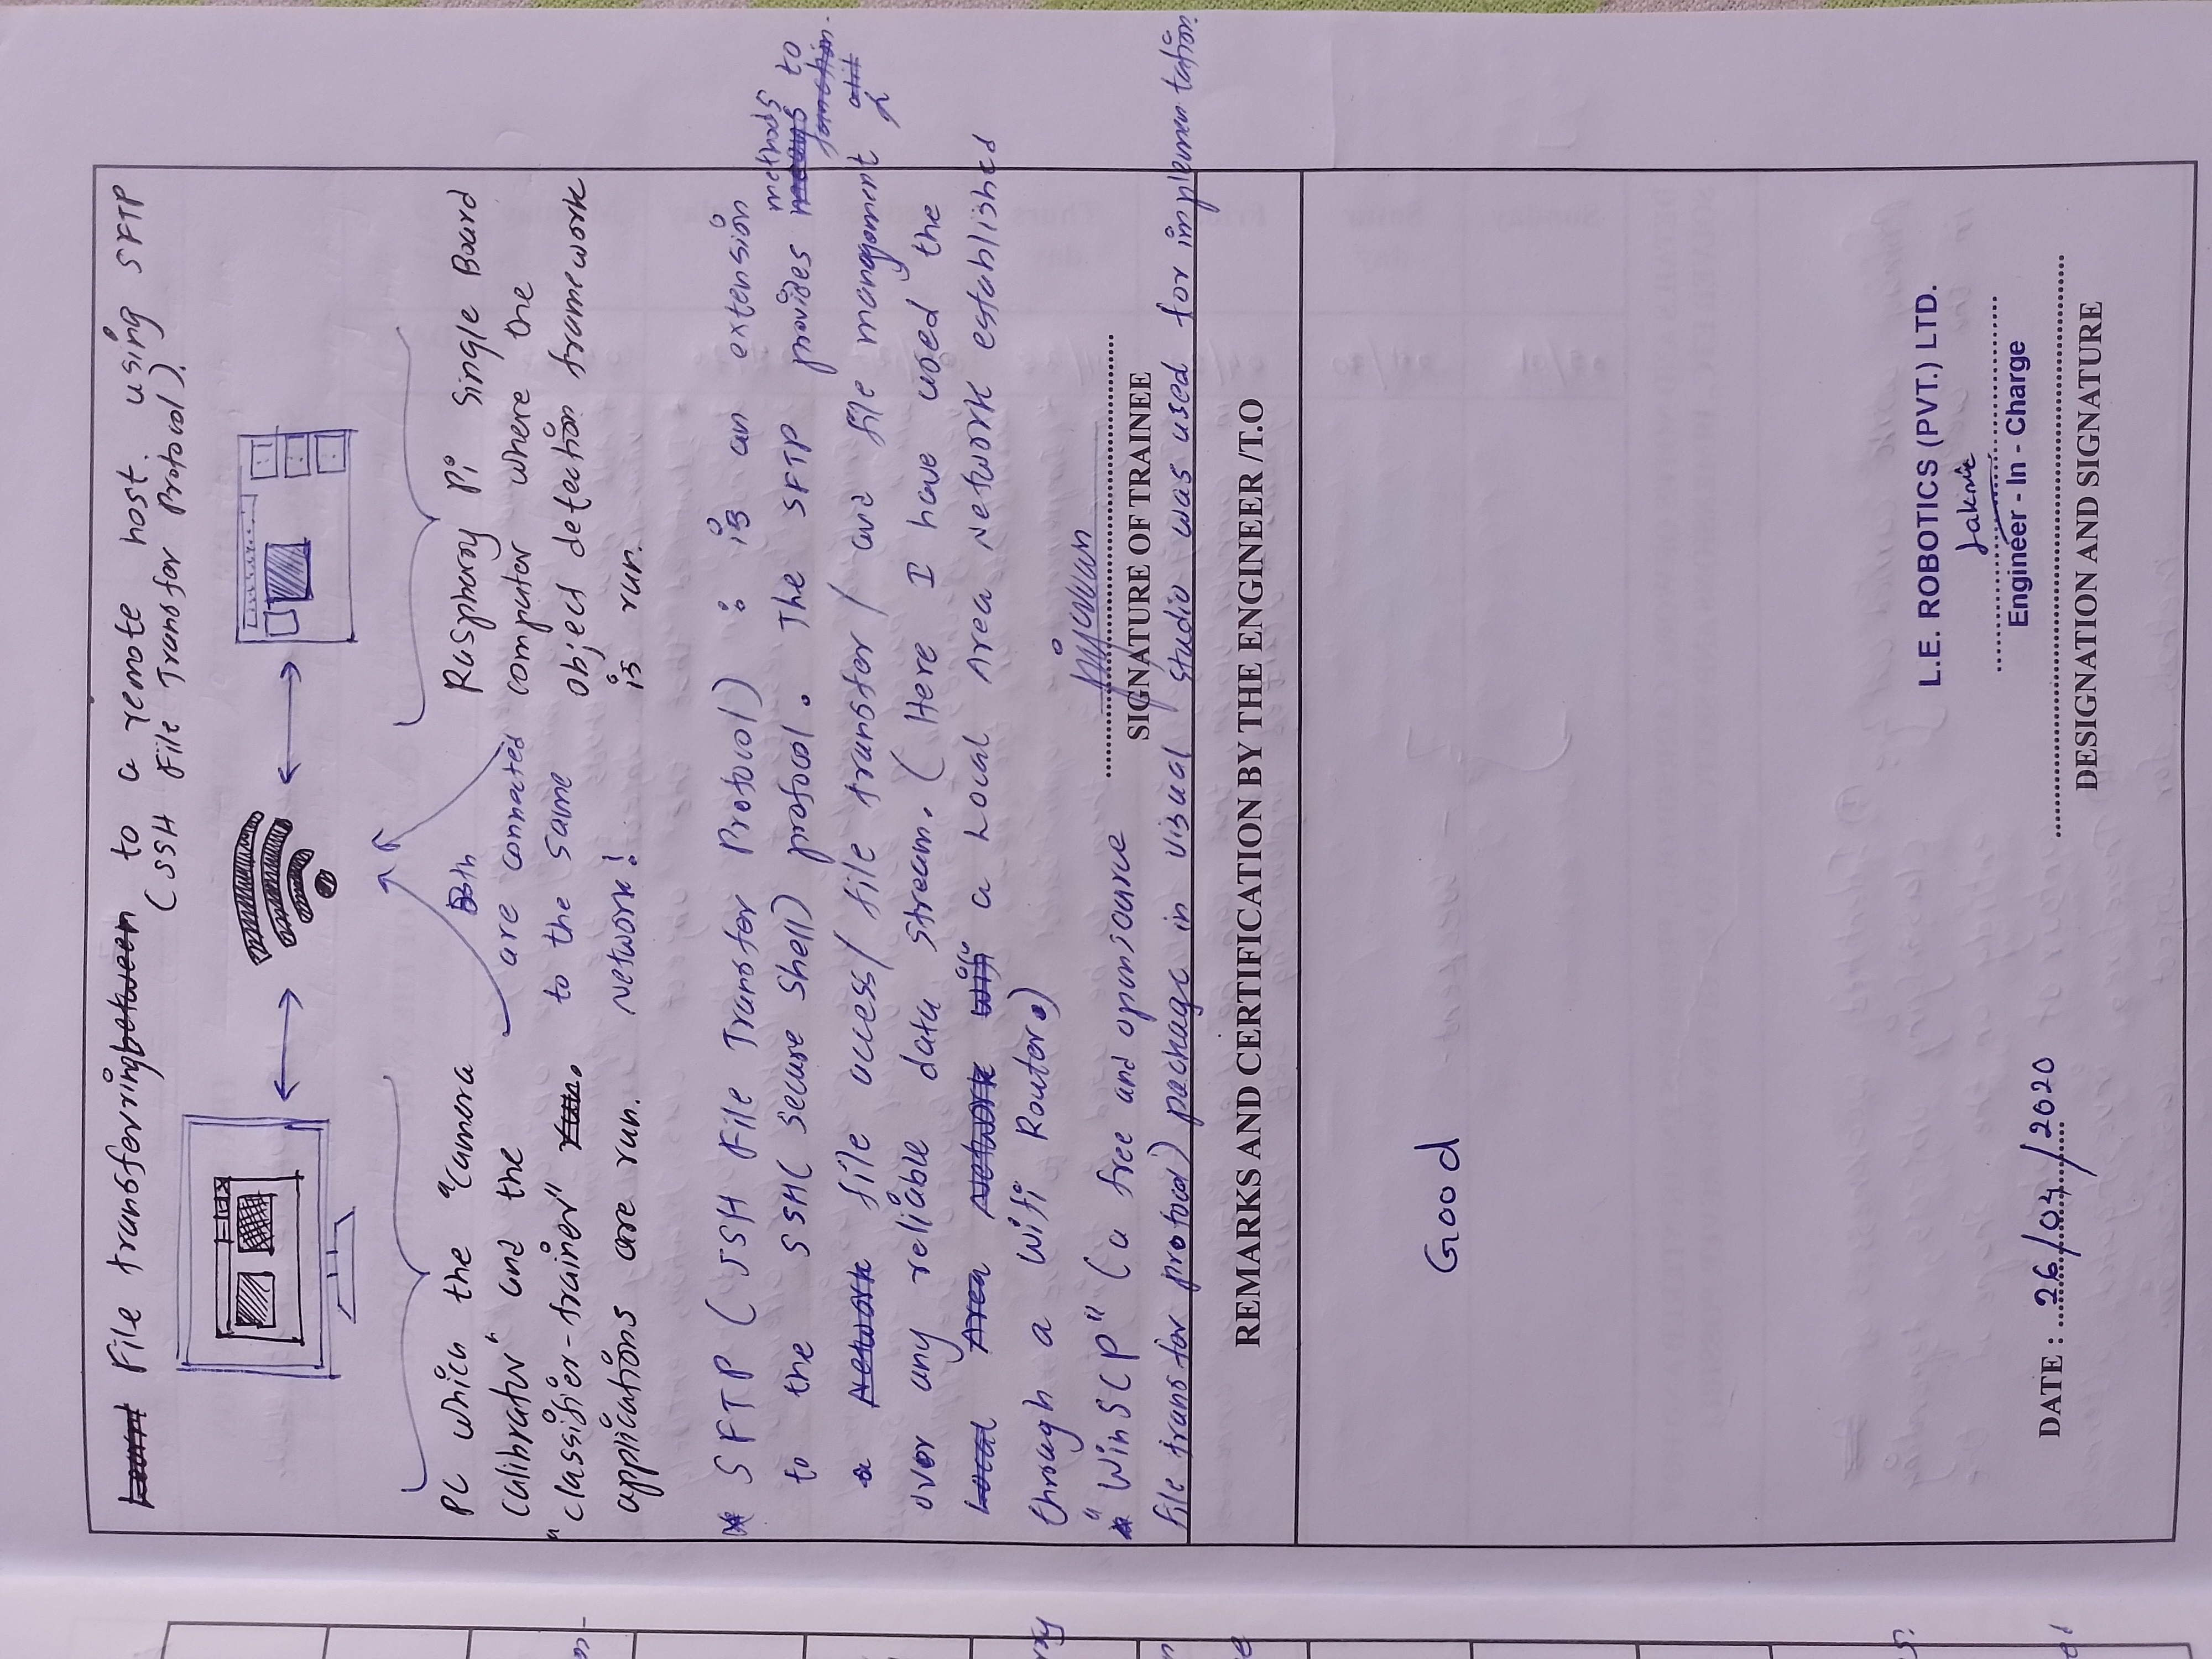 File transferring to a remote host. using SFTP
(SSH File Transfer Protocol).
PC which the "Camera
Calibrator" and the
"classifier-trainer"
applications are run.
Both
are connected
to the same
Network!
Raspberry Pi Single Board
computer where the
object detection framework
is run.
* SFTP (SSH File Transfer Protocol) : is an extension
to the SSH( Secure Shell) protocol. The SFTP provides methods to
file access/ file transfer/ and file management
over any reliable data stream. ( Here I have used the
a Local Area Network established
through a Wifi Router.)
"WinSCP" (a free and opensource
file transfer protocol) package in visual studio was used for implementation.
SIGNATURE OF TRAINEE
REMARKS AND CERTIFICATION BY THE ENGINEER /T.O
Good
L.E. ROBOTICS (PVT.) LTD.
Engineer - In - Charge
DATE : 26/04/2020
DESIGNATION AND SIGNATURE